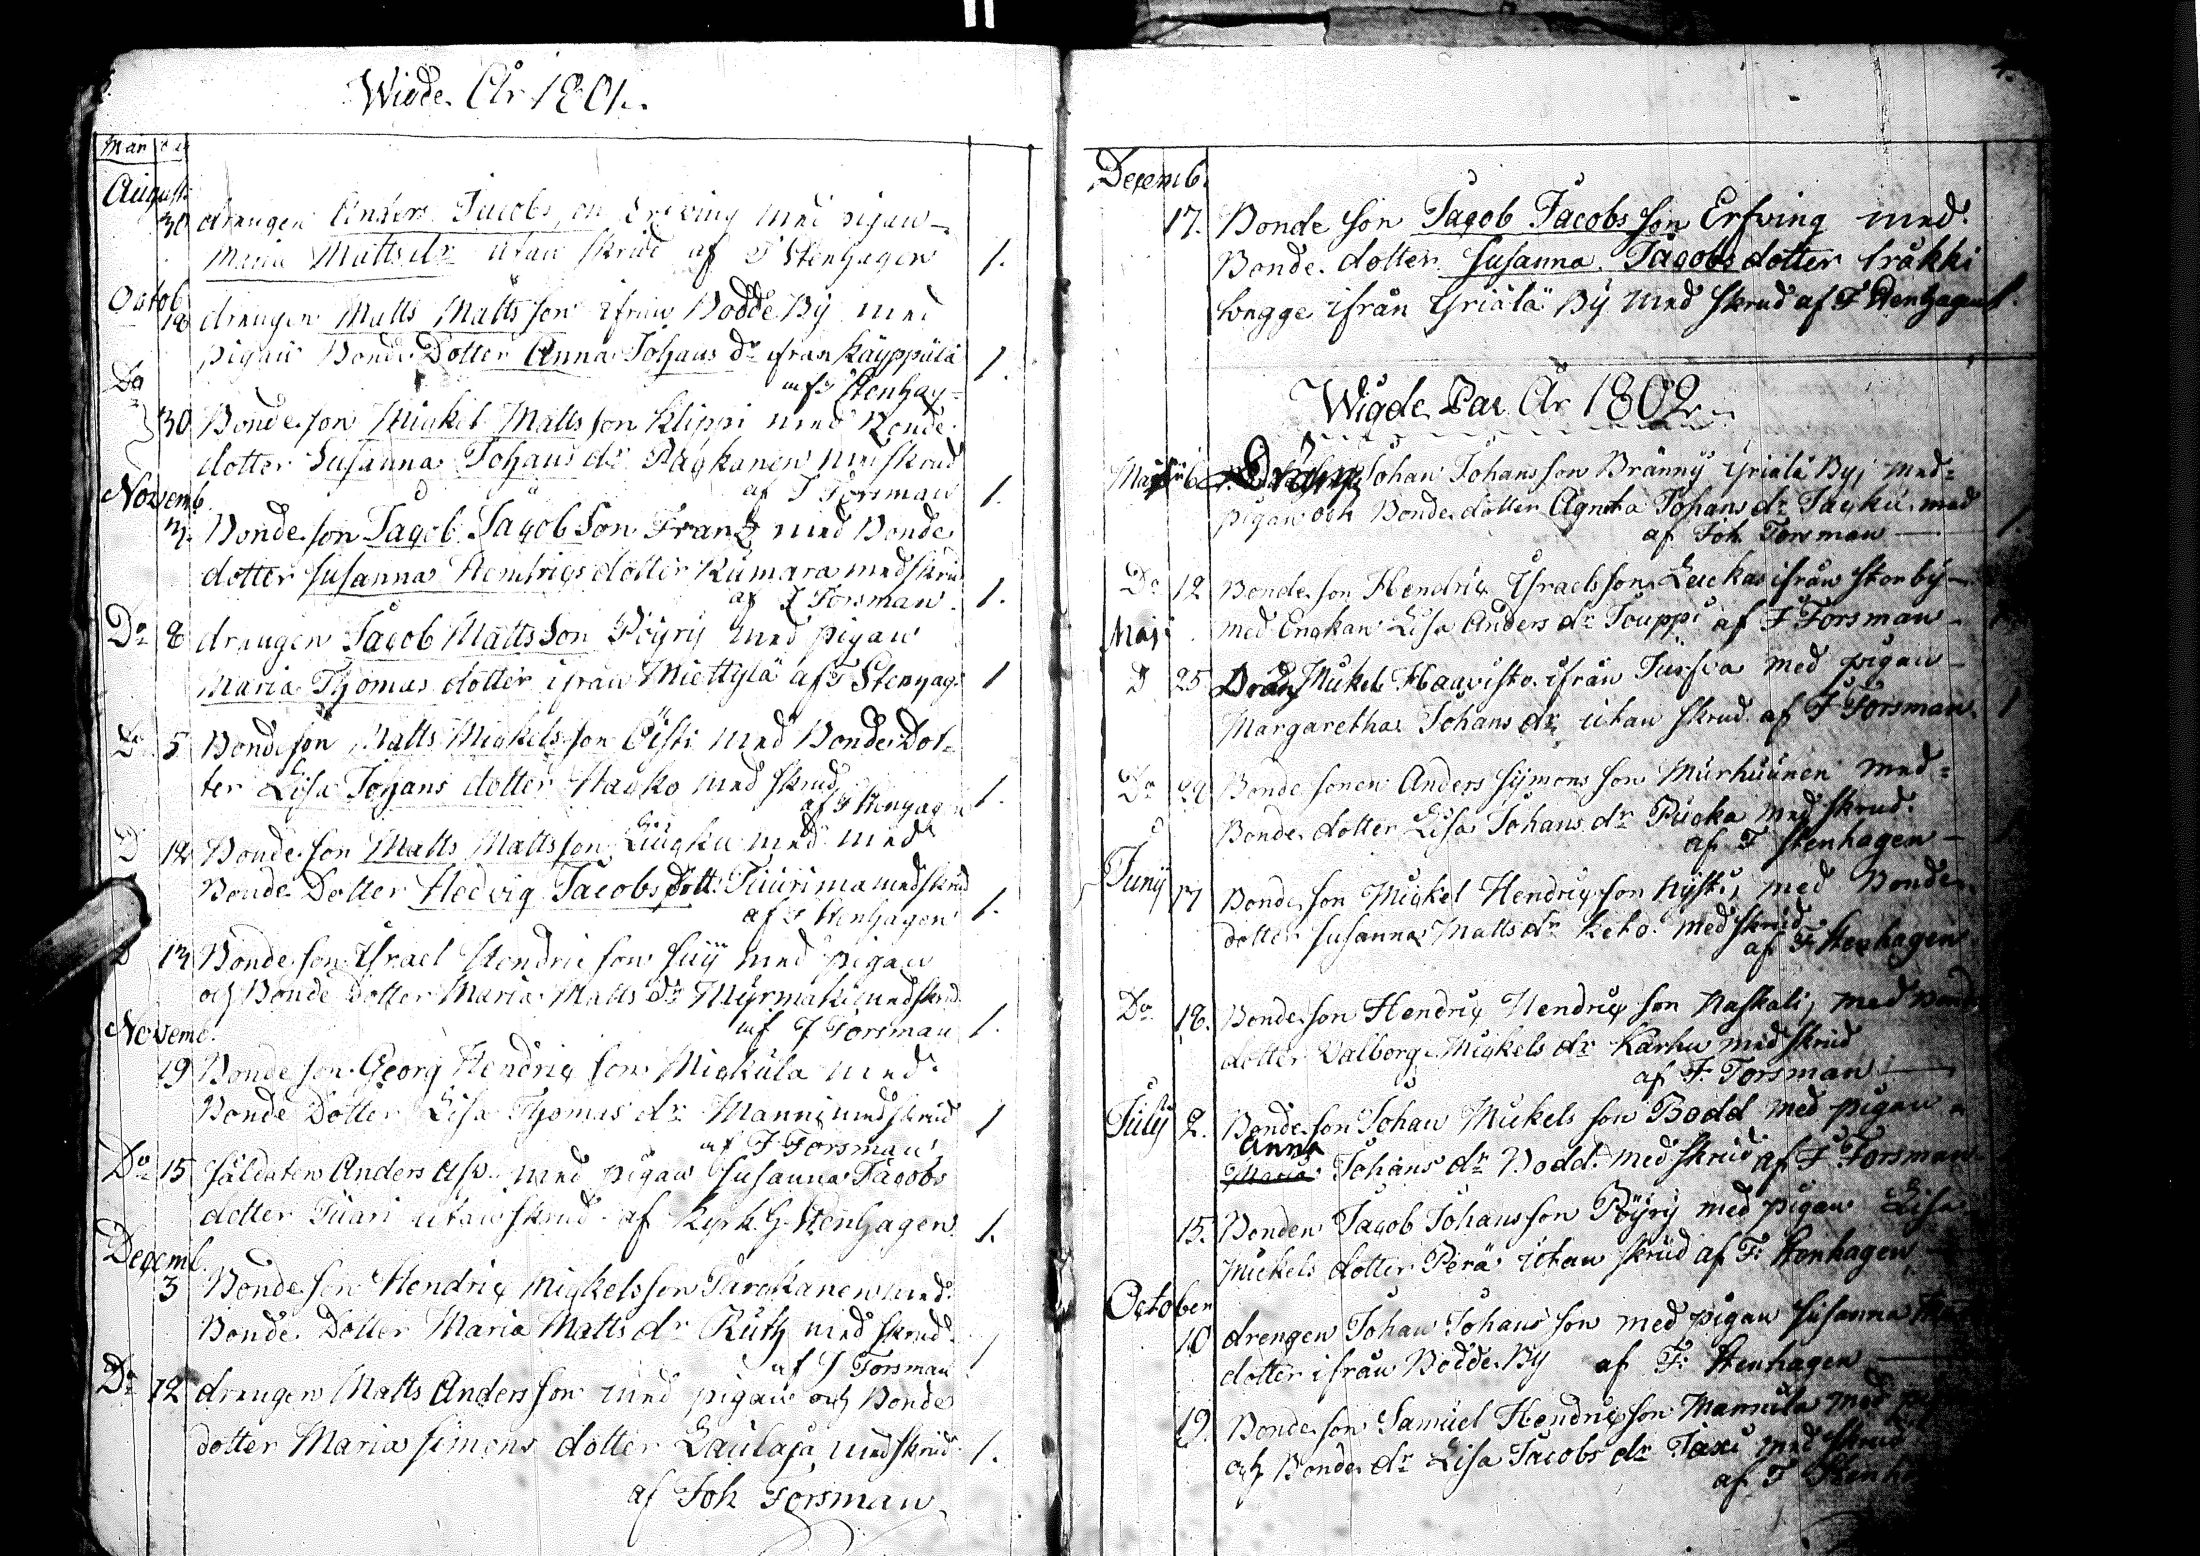 Wigde År 1801.
Mån dag
August:
30 drengen Anders Jacobsson Erfving med pigan
Maria Mattsdr utan skrud af F Stenhagen 1.
Octob
18 drengen Matts Mattsson ifrån Bodde By med
pigan Bonde Dotter Anna Johans dr ifran Käyppälä 1.
af F Stenhag
Do
30 Bonde son Mickel Matts son Klippi med Bonde
dotter Susanna Johans dr Päykänen med skrud
af J Forsman 1.
Novemb.
Bonde son Jacob Jacob Son Frantz med Bonde
dotter Susanna Hendrics dotter Kumara med skrud
af J Forsman 1.
Do 8 drengen Jacob Matts Son Pöyry med pigan
Maria Thomas dotter ifrån Miettylä af F Stenhag. 1
Do 5 Bonde son Matts Mickels son Eisti med Bonde Dot=
ter Lisa Johans dotter Hauko med skrud
af F Stenhagen 1.
D Bonde son Matts Mattsson med
Bonde Dotter Hedvig Jacobs dott. Tiurima med skrud
af F Stenhagen 1.
D 14 Bonde son Israel Hendric son med pigan
och Bonde Dotter Maria Matts dr Myrmäki med skrud
af J Forsman 1.
Novemb.
19 Bonde son Georg Hendric son Mickula med
Bonde Dotter Lisa Thomas dr Manni med skrud 1
af J Forsman
Do 15 Soldaten Anders Asp med pigan Susanna Jacobs
dotter Tuari utan skrud af Kyrk G. Stenhagen 1.
Decemb.
3 Bonde son Hendric Mickelsson Tarckanen med
Bonde Dotter Maria Matts dr Ruth med skrud 1
af J Forsman
Do 12 drengen Matts Anders son med pigan och Bonde
dotter Maria Simons dotter Laulaja med skrud 1.
af Joh Forsman
Decemb.
17. Bonde Son Jacob Jacobs son Erfving med
Bonde dotter Susanna Jacobs dotter
ifrån Yriälä By med skrud af F Stenhagen 1.
Wigde Par År 1802
Dräng Johan Johans son Bränny Yriälä By, med=
pigan och Bonde dotter Agneta Johans dr med
af Joh Forsman 1.
Do 12 Bonde son Hendric Israels son Luckas ifrån Storby
Maji med Enkan Lisa Anders dr Jouppi af J Forsman
D 25 Dräng Mickel Haavisto ifrån Jurva med pigan
Margaretha Johans dr utan skrud af J Forsman 1
Do 29 Bonde sonen Anders Symons son Murhuunen med=
Bonde dotter Lisa Johans dr Rucka med skrud.
af F Stenhagen
Juny
17 Bonde son Mickel Hendric son Nysti, med Bonde
dotter Susanna Matts dr Keto med skrud
af F Stenhagen
Do 18. Bonde son Hendric Hendric son Naskali, med Bonde
dotter Valborg Mickels dr Karhu med skrud
af J. Forsman
July 2. Bonde son Johan Mickels son Bodd med pigan
Anna
Maria Johans dr Bodd. med skrud af J Forsman
15. Bonden Jacob Johansson Pöyry med pigan Lisa
Mickels dotter Perä utan skrud af F. Stenhagen
October
10 drengen Johan Johans son med pigan Susanna
dotter ifrån Bodde By af F. Stenhagen
19. Bonde son Samuel Hendric son Mannila med
och Bonde dr Lisa Jacobs dr Taxi med skrud
af F